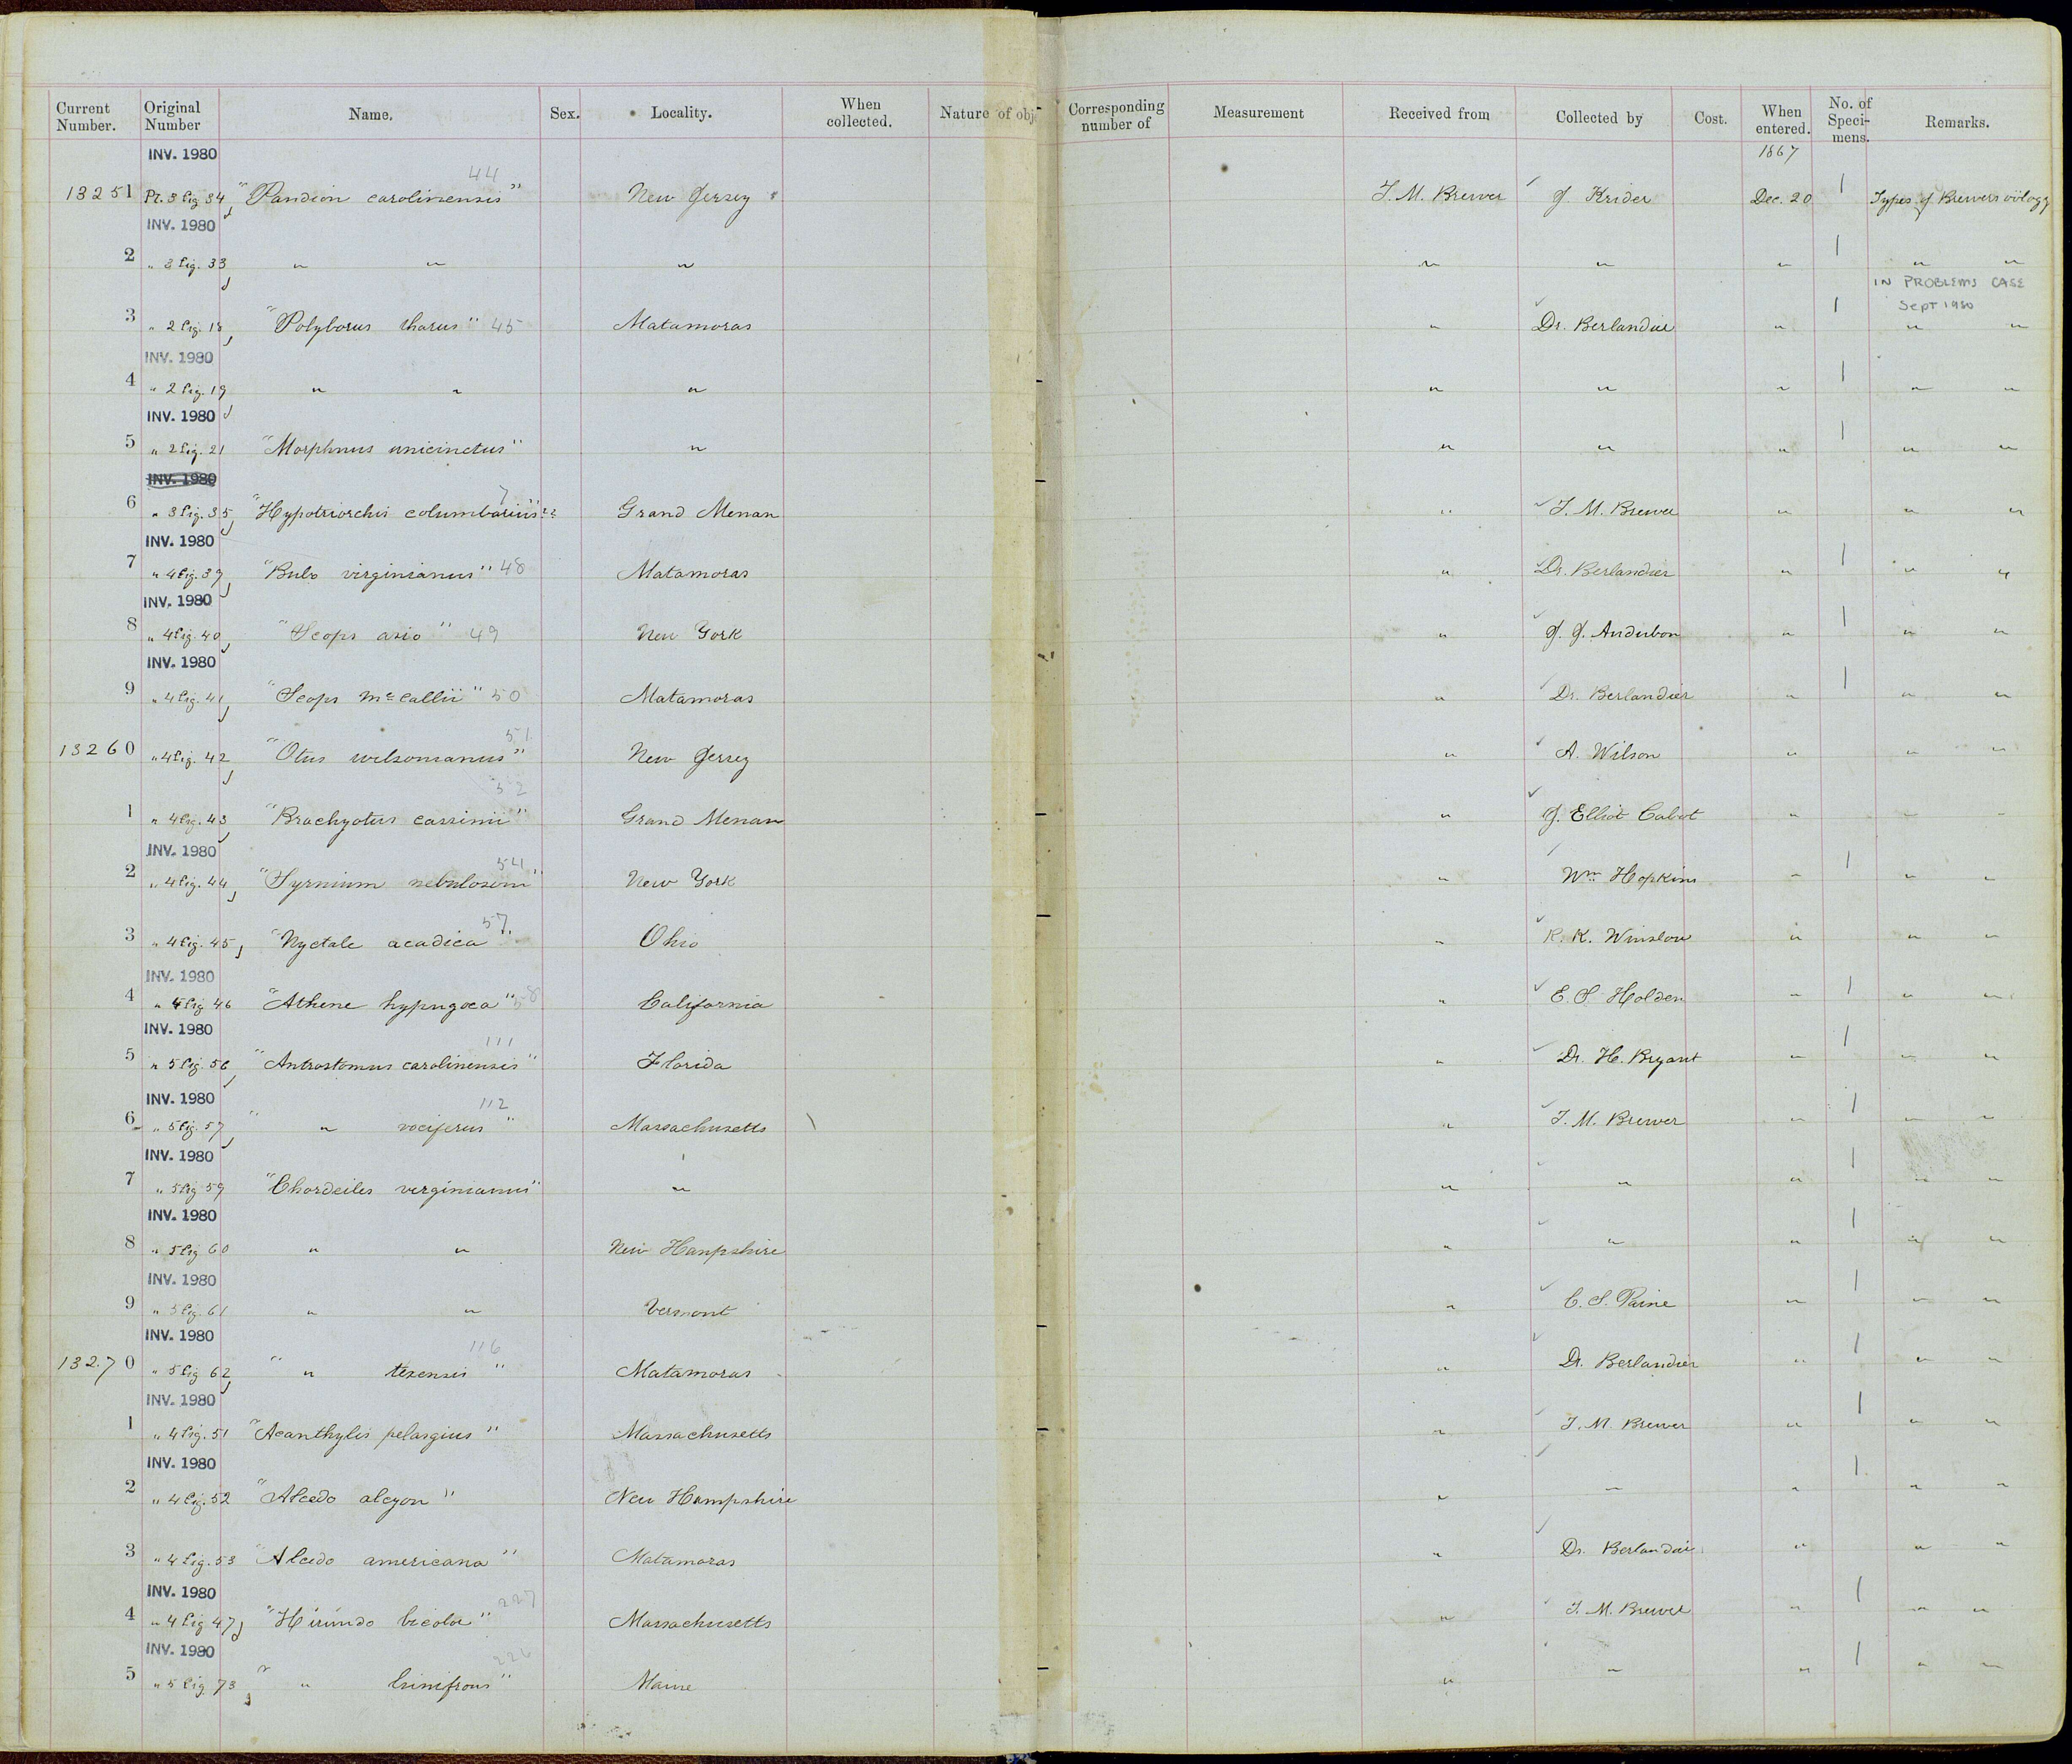 Current Number. Original Number Name. Sex. Locality. When collected. Nature of obj Corresponding number of Measurement Received from Collected by Cost. When entered. No. of Specimens. Remarks.
INV. 1980 1867
44
13251 Pl. 3 fig 34, "Pandion carolinensis" New Jersey T. M. Brewer ✓ J. Krider Dec. 20 1 Types of Brewers oölogy
INV. 1980
2 " 3 fig. 33, " " " " " " 1 " "
IN PROBLEMS CASE
SEPT 1980
3 " 2 fig. 18, "Polyborus tharus" 45 Matamoras " ✓ Dr. Berlandier " 1 " "
INV. 1980
4 " 2 fig. 19, " " " " " " 1 " "
INV. 1980
5 " 2 fig. 21 "Morphnus unicinctus" " " " " 1 " "
INV. 1980
6 " 3 fig. 35, "Hypotriorchis columbarius"?? 7 Grand Menan " ✓ T. M. Brewer " " "
INV. 1980
7 " 4 fig. 39, "Bubo virginianus" 48 Matamoras " ✓ Dr. Berlandier " 1 " "
INV. 1980
8 " 4 fig. 40, "Scops asio" 49 New York " ✓ J. J. Audubon " 1 " "
INV. 1980
9 " 4 fig. 41, "Scops McCallii" 50 Matamoras " ✓ Dr. Berlandier " 1 " "
51
13260 " 4 fig. 42, "Otus wilsonianus" New Jersey " ✓ A. Wilson " " "
52
1 " 4 fig. 43, "Brachyotus cassinii" Grand Menan " ✓ J. Elliot Cabot " " "
INV. 1980
54
2 " 4 fig. 44, "Syrnium nebulosum" New York " ✓ Wm Hopkins " 1 " "
57.
3 " 4 fig. 45, "Nyctale acadica" Ohio " ✓ R. K. Winslow " " "
INV. 1980
4 " 4 fig 46 "Athene hypugaea" 58 California " ✓ E. S. Holden " 1 " "
INV. 1980
111
5 " 5 fig. 56, "Antrostomus carolinensis" Florida " ✓ Dr. H. Bryant " 1 " "
INV. 1980
112
6 " 5 fig. 57, " " vociferus" Massachusetts " ✓ T. M. Brewer " 1 " "
INV. 1980
7 " 5 fig 59 "Chordeiles virginianus" " " ✓ " " 1 " "
INV. 1980
8 " 5 fig 60 " " New Hampshire " ✓ " " 1 " "
INV. 1980
9 " 5 fig. 61 " " Vermont " ✓ C. S. Paine " 1 " "
INV. 1980
116
13270 " 5 fig 62, " " texensis" Matamoras " ✓ Dr. Berlandier " 1 " "
INV. 1980
1 " 4 fig. 51 "Acanthylis pelasgius" Massachusetts " ✓ T. M. Brewer " 1 " "
INV. 1980
2 " 4 fig. 52 "Alcedo alcyon" New Hampshire " ✓ " " 1 " "
3 " 4 fig. 53 "Alcedo americana" Matamoras " ✓ Dr. Berlandier " " "
INV. 1980
227
4 " 4 fig 47, "Hirundo bicolor" Massachusetts " ✓ T. M. Brewer " 1 " "
INV. 1980
226
5 " 5 fig. 73, " " lunifrons" Maine " " " 1 " "